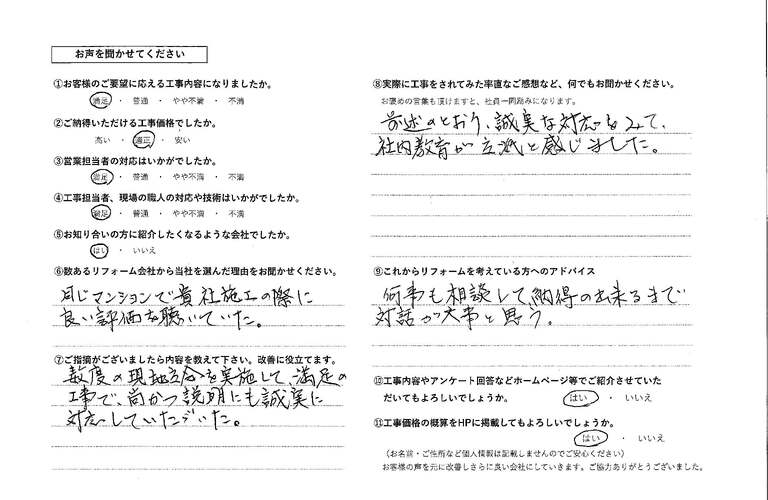 お声を聞かせてください
①お客様のご要望に応える工事内容になりましたか。
満足 ・ 普通 ・ やや不満 ・ 不満
②ご納得いただける工事価格でしたか。
高い ・ 適正 ・ 安い
③営業担当者の対応はいかがでしたか。
満足 ・ 普通 ・ やや不満 ・ 不満
④工事担当者、現場の職人の対応や技術はいかがでしたか。
満足 ・ 普通 ・ やや不満 ・ 不満
⑤お知り合いの方に紹介したくなるような会社でしたか。
はい ・ いいえ
⑥数あるリフォーム会社から当社を選んだ理由をお聞かせください。
同じマンションで貴社施工の際に
良い評価を聴いていた。
⑦ご指摘がございましたら内容を教えて下さい。改善に役立てます。
数度の現地立会を実施して、満足の
工事で、尚かつ説明にも誠実に
対応していただいた。
⑧実際に工事をされてみた率直なご感想など、何でもお聞かせください。
お褒めの言葉も頂けますと、社員一同励みになります。
前述のとおり、誠実な対応をみて、
社内教育が立派と感じました。
⑨これからリフォームを考えている方へのアドバイス
何事も相談して納得の出来るまで
対話が大事と思う。
⑩工事内容やアンケート回答などホームページ等でご紹介させていた
だいてもよろしいでしょうか。 はい ・ いいえ
⑪工事価格の概算をHPに掲載してもよろしいでしょうか。
はい ・ いいえ
（お名前・ご住所など個人情報は記載しませんのでご安心ください）
お客様の声を元に改善しさらに良い会社にしていきます。ご協力ありがとうございました。